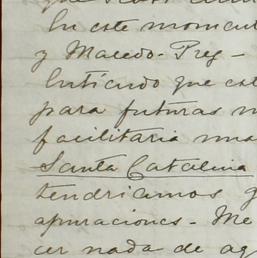 En este momento
y Macedo - Preg-
Entiendo que est
para futuras n
facilitaria una
Santa Catalina
tendriamos g
apuraciones - Me
cer nada de ag